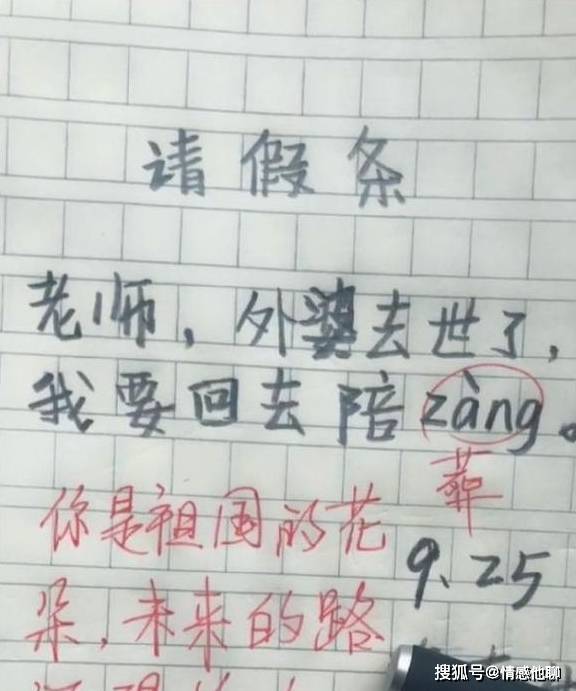 请假条
老师，外婆去世了，
我要回去陪zàng。
葬
你是祖国的花
9.25
朵，未来的路
搜狐号@情感他聊